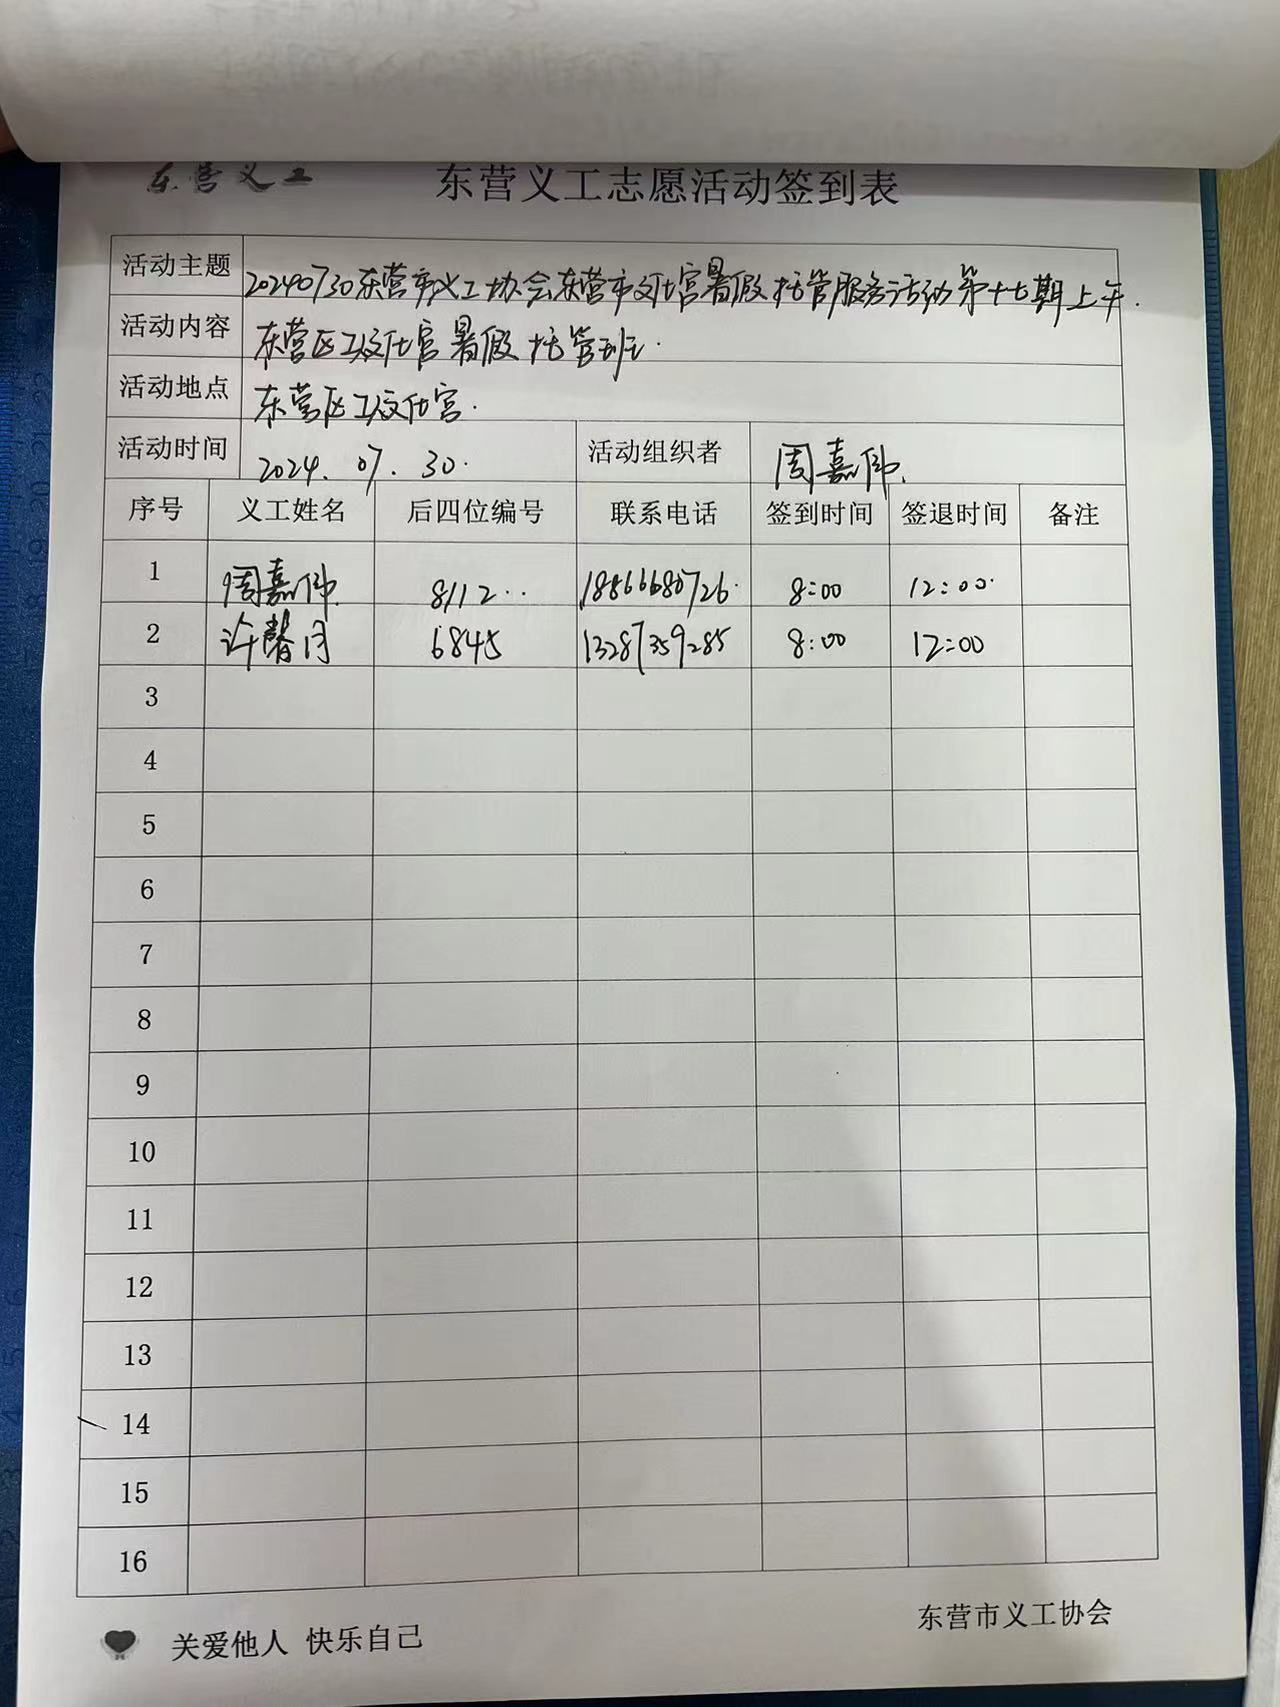 东营义工 东营义工志愿活动签到表
活动主题 20240730东营市义工协会东营市文化宫暑假托管服务活动第十七期上午.
活动内容 东营区工人文化宫暑假托管班.
活动地点 东营区工人文化宫.
活动时间 2024.07.30. 活动组织者 周嘉伟.
序号 义工姓名 后四位编号 联系电话 签到时间 签退时间 备注
1 周嘉伟. 8112.. 18866680726. 8:00 12:00.
2 许馨月 6845 13287359285 8:00 12:00
3
4
5
6
7
8
9
10
11
12
13
14
15
16
关爱他人 快乐自己 东营市义工协会